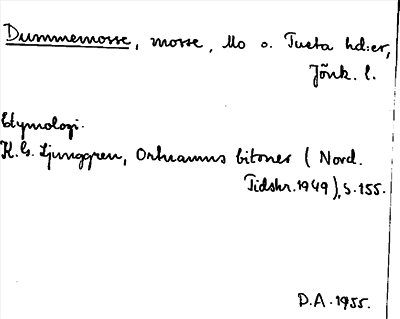 Dummemosse, mosse, Mo o. Tveta hd:er,
Jönk. l.
Etymologi.
K.G. Ljunggren, Ortnamns bitoner (Nord.
Tidskr. 1949), s. 155.
D.A. 1955.